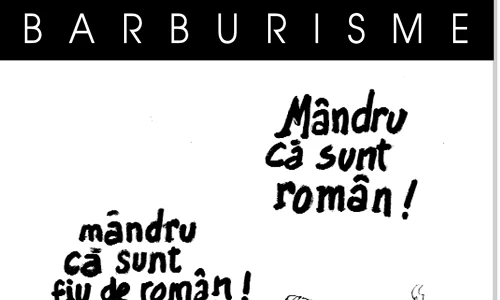 BARBURISME
Mândru
că sunt
român!
mândru
că sunt
fiu de român!